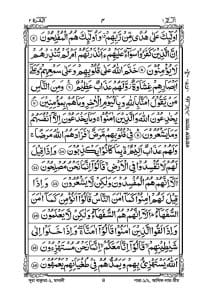 الٓمّٓ ١ ٣ البقرة ٢
اُولٰٓئِكَ عَلٰى هُدًى مِّنْ رَّبِّهِمْ وَاُولٰٓئِكَ هُمُ الْمُفْلِحُوْنَ
اِنَّ الَّذِيْنَ كَفَرُوْا سَوَآءٌ عَلَيْهِمْ ءَاَنْذَرْتَهُمْ اَمْ لَمْ تُنْذِرْهُمْ
لَا يُؤْمِنُوْنَ خَتَمَ اللّٰهُ عَلٰى قُلُوْبِهِمْ وَعَلٰى سَمْعِهِمْ وَعَلٰٓى
اَبْصَارِهِمْ غِشَاوَةٌ وَّلَهُمْ عَذَابٌ عَظِيْمٌ وَمِنَ النَّاسِ
مَنْ يَّقُوْلُ اٰمَنَّا بِاللّٰهِ وَبِالْيَوْمِ الْاٰخِرِ وَمَا هُمْ بِمُؤْمِنِيْنَ
يُخٰدِعُوْنَ اللّٰهَ وَالَّذِيْنَ اٰمَنُوْا وَمَا يَخْدَعُوْنَ اِلَّآ اَنْفُسَهُمْ
وَمَا يَشْعُرُوْنَ فِيْ قُلُوْبِهِمْ مَّرَضٌ فَزَادَهُمُ اللّٰهُ مَرَضًا
وَلَهُمْ عَذَابٌ اَلِيْمٌ بِمَا كَانُوْا يَكْذِبُوْنَ وَاِذَا قِيْلَ
لَهُمْ لَا تُفْسِدُوْا فِى الْاَرْضِ قَالُوْٓا اِنَّمَا نَحْنُ مُصْلِحُوْنَ
اَلَآ اِنَّهُمْ هُمُ الْمُفْسِدُوْنَ وَلٰكِنْ لَّا يَشْعُرُوْنَ وَاِذَا
قِيْلَ لَهُمْ اٰمِنُوْا كَمَآ اٰمَنَ النَّاسُ قَالُوْٓا اَنُؤْمِنُ كَمَآ اٰمَنَ
السُّفَهَآءُ اَلَآ اِنَّهُمْ هُمُ السُّفَهَآءُ وَلٰكِنْ لَّا يَعْلَمُوْنَ
وَاِذَا لَقُوا الَّذِيْنَ اٰمَنُوْا قَالُوْٓا اٰمَنَّا وَاِذَا خَلَوْا اِلٰى
شَيٰطِيْنِهِمْ قَالُوْٓا اِنَّا مَعَكُمْ اِنَّمَا نَحْنُ مُسْتَهْزِءُوْنَ
اَللّٰهُ يَسْتَهْزِئُ بِهِمْ وَيَمُدُّهُمْ فِيْ طُغْيَانِهِمْ يَعْمَهُوْنَ
সূরা বাকারা-২, মাদানী ৪ পারা-১/১, আলিফ-লাম-মীম